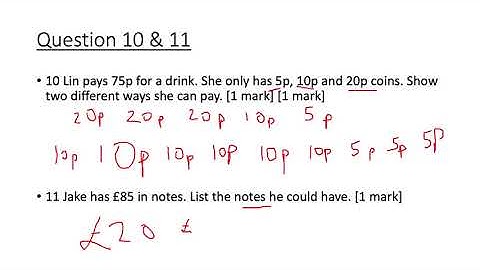 Question 10 & 11
• 10 Lin pays 75p for a drink. She only has 5p, 10p and 20p coins. Show
two different ways she can pay. [1 mark] [1 mark]
20p 20p 20p 10p 5p
10p 10p 10p 10p 10p 10p 5p 5p 5p
• 11 Jake has £85 in notes. List the notes he could have. [1 mark]
£20 £